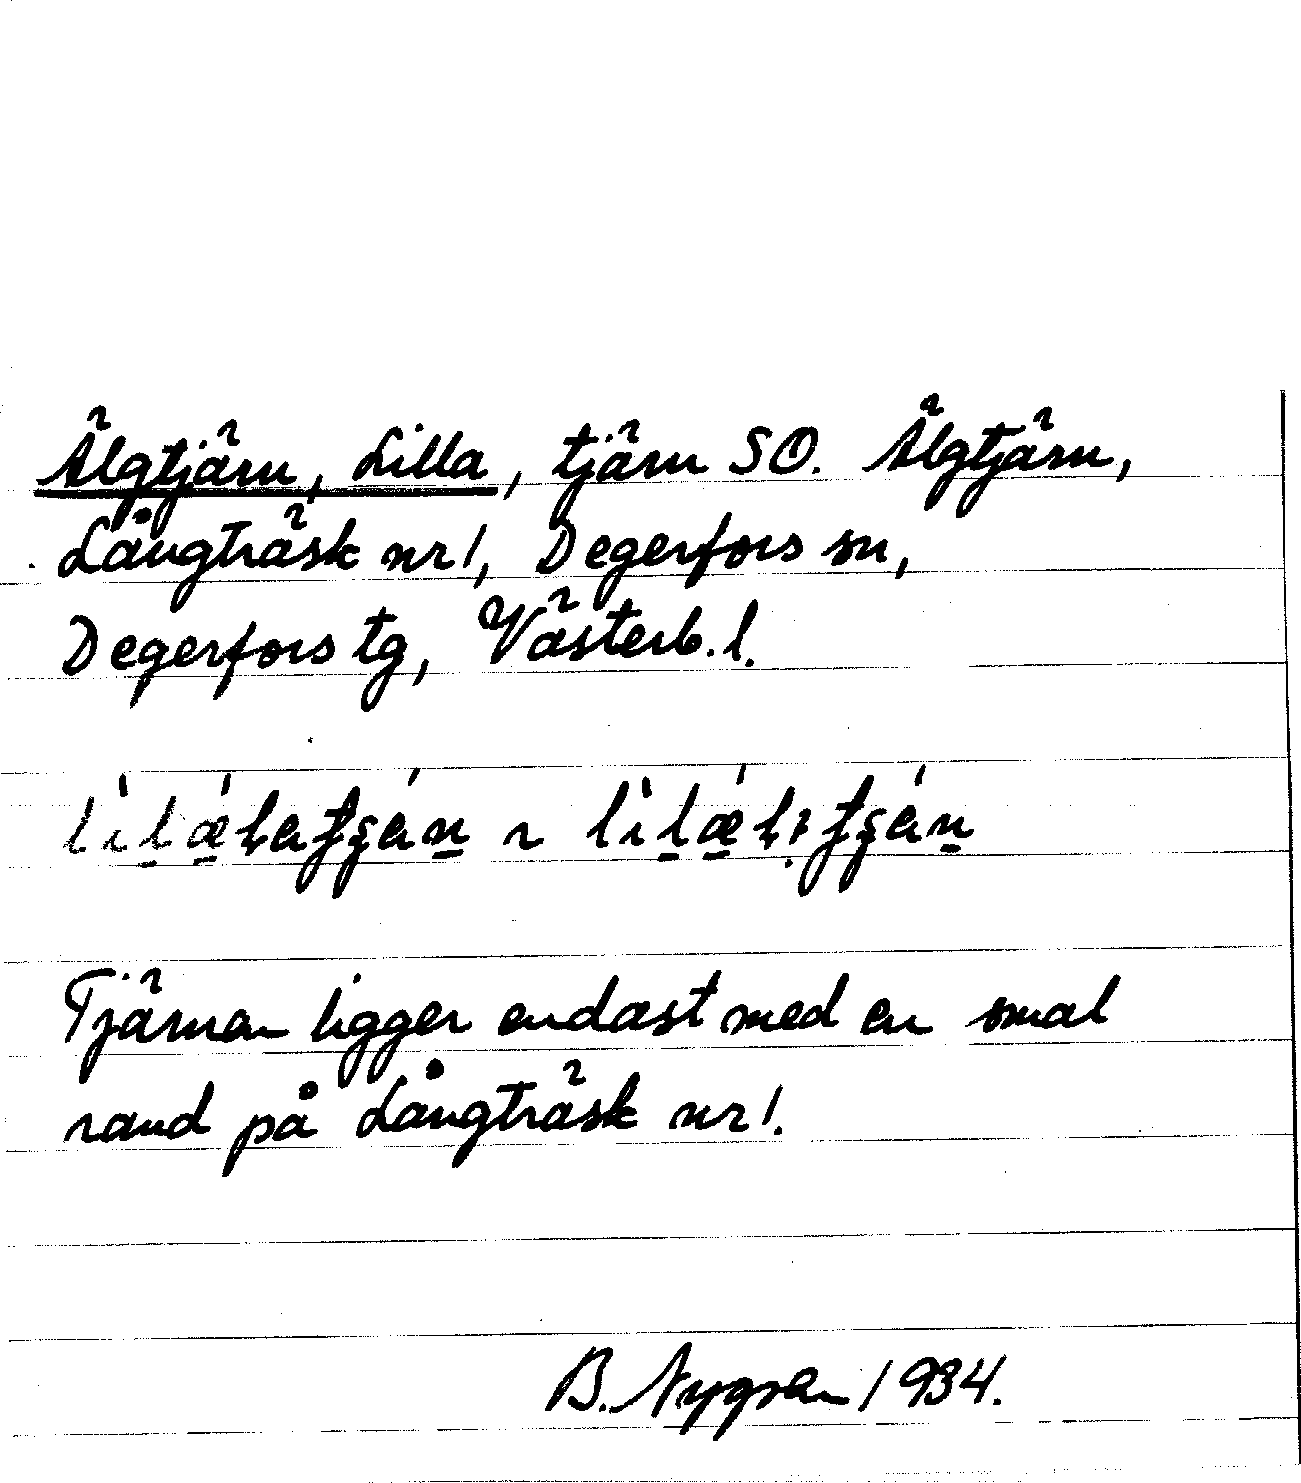 Älgtjärn, Lilla, tjärn SO. Älgtjärn,
Långträsk nr 1, Degerfors sn,
Degerfors tg, Västerb. l.
Tjärnen ligger endast med en smal
rand på Långträsk nr 1.
B. Nygren 1934.